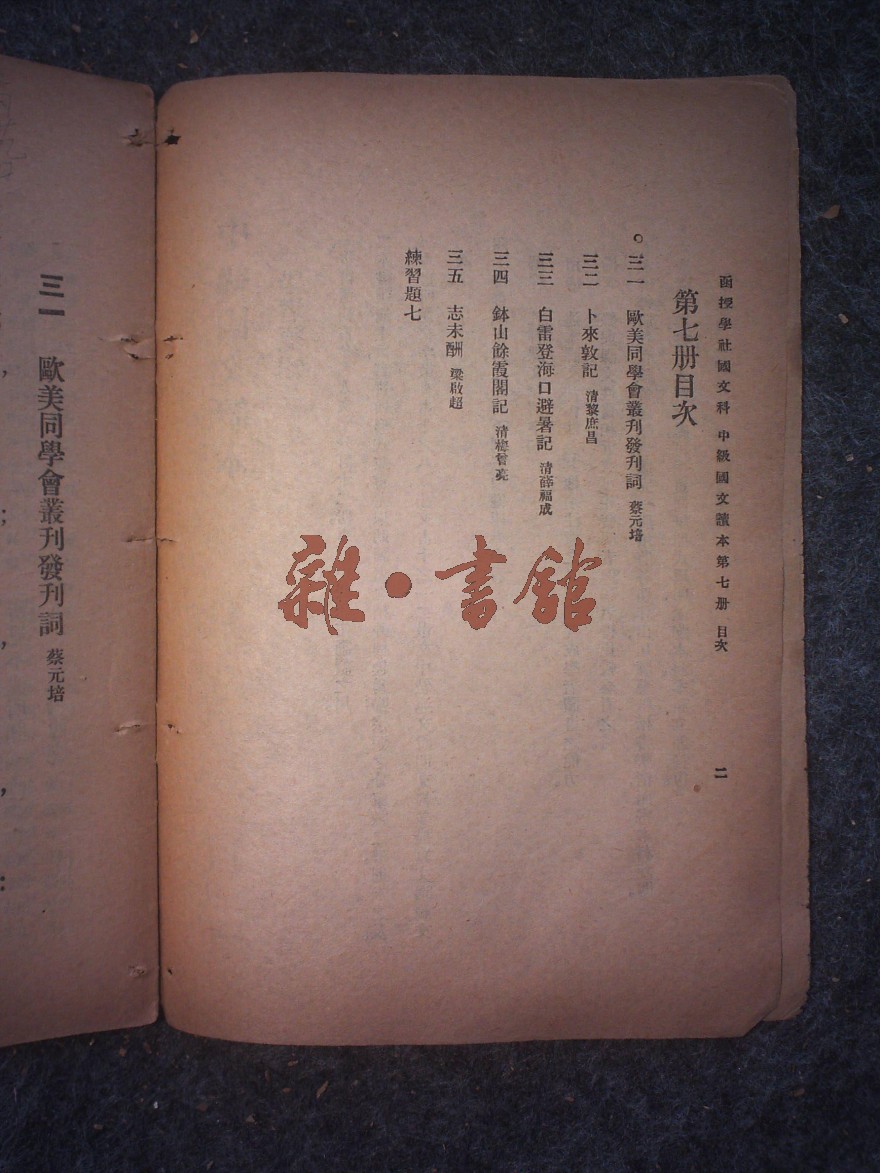 函授學社國文科 中級國文讀本第七册 目次 二
第七册目次
○三一 歐美同學會叢刊發刊詞 蔡元培
三二 卜來敦記 清黎庶昌
三三 白雷登海口避暑記 清薛福成
三四 鉢山餘霞閣記 清梅曾亮
三五 志未酬 梁啟超
練習題七
雜·書館
三一 歐美同學會叢刊發刊詞 蔡元培